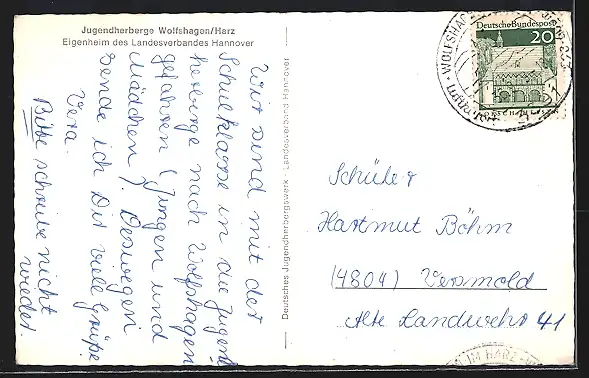 Jugendherberge Wolfshagen/Harz
Eigenheim des Landesverbandes Hannover
Wir sind mit der
Schulklasse in die Jugend-
herberge nach Wolfshagen
gefahren (Jungen und
Mädchen). Deswegen
sende ich Dir viele Grüße
Vera.
Bitte schreibe nicht
wieder.
Deutsches Jugendherbergswerk - Landesverband Hannover
Deutsche Bundespost
20
LORSCH/HESSEN
WOLFSHAGEN
Schüler
Hartmut Böhm
(4804) Versmold
Alte Landwehr 41
IM HARZ